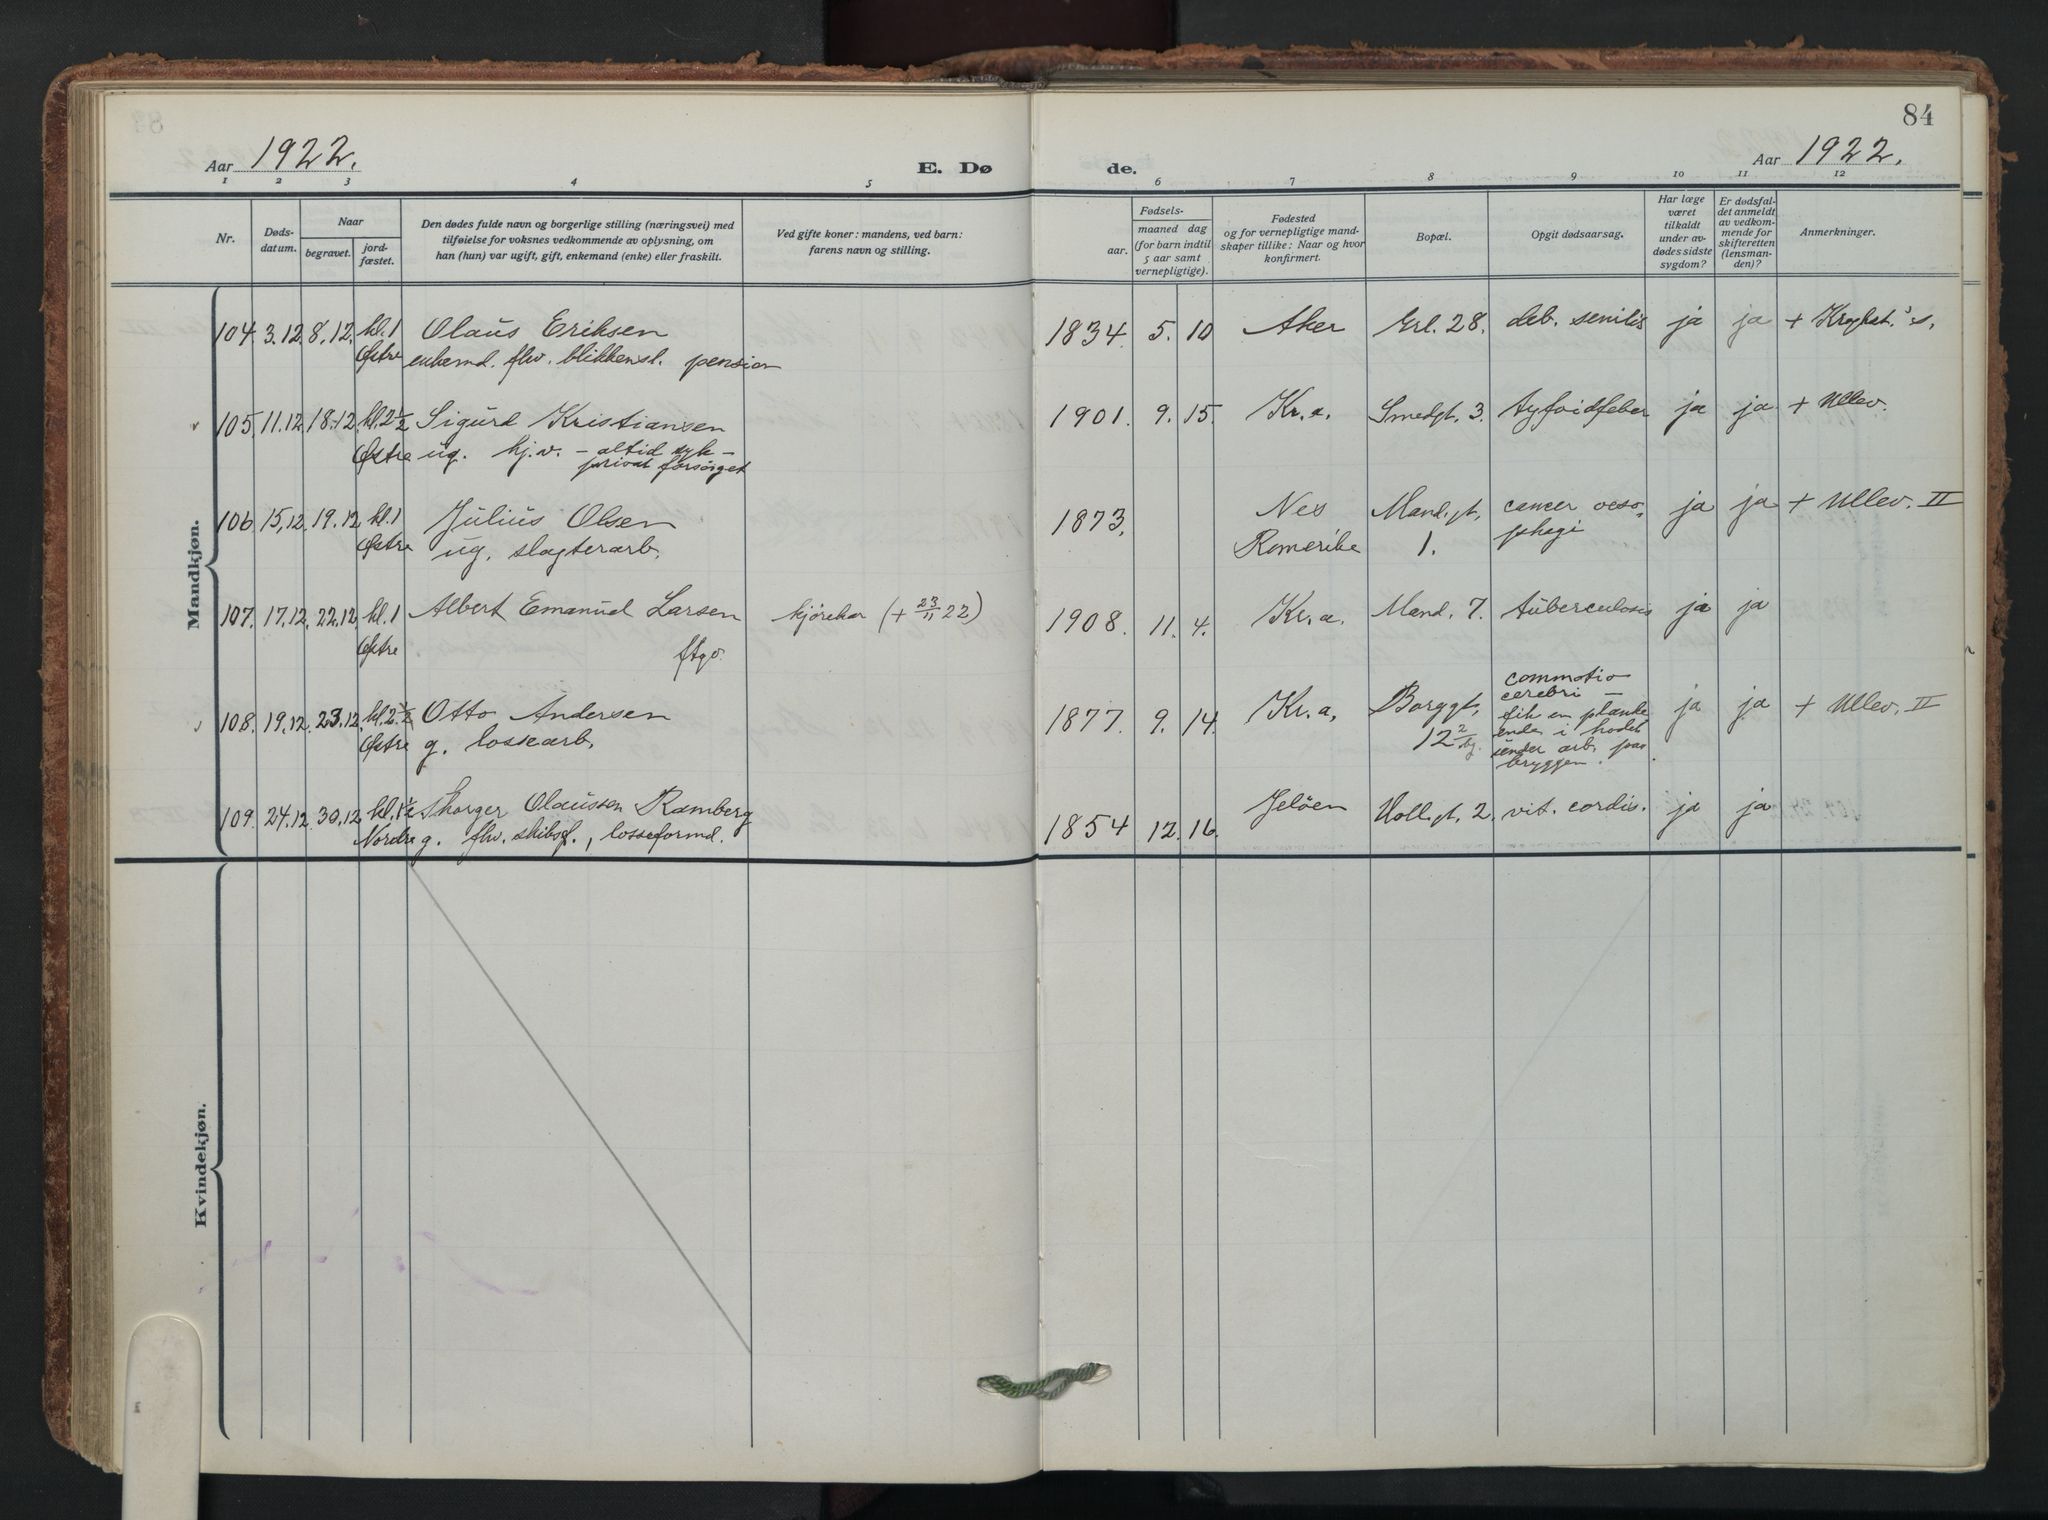 84
Aar 1922. E. Dø de. Aar 1922.
1 2 3 4 5 6 7 8 9 10 11 12
Nr.
Døds-
datum.
Naar
begravet.
jord-
fæstet.
Den dødes fulde navn og borgerlige stilling (næringsvei) med
tilføielse for voksnes vedkommende av oplysning, om
han (hun) var ugift, gift, enkemand (enke) eller fraskilt.
Ved gifte koner: mandens, ved barn:
farens navn og stilling.
Fødsels-
aar.
maaned dag
(for barn indtil
5 aar samt
vernepligtige).
Fødested
og for vernepligtige mand-
skaper tillike: Naar og hvor
konfirmert.
Bopæl.
Opgit dødsaarsag.
Har læge
været
tilkaldt
under av-
dødes sidste
sygdom?
Er dødsfal-
det anmeldt
av vedkom-
mende for
skifteretten
(lensman-
den)?
Anmerkninger.
Mandkjøn.
104. 3.12 8.12. kl. 1 Olaus Eriksen 1834. 5. 10 Aker Erl. 28. deb. senilis ja ja +
Østre enkemd. fhv. blikkensl. pension
105. 11.12 18.12. kl. 2½ Sigurd Kristiansen 1901. 9. 15. Kr.a. Smedgt. 3. tyfoidfeber ja ja + Ullev.
Østre ug. hj.v. – altid syk –
privat forsørget
106 15.12. 19.12. kl. 1 Julius Olsen 1873. Nes Mand.gt. cancer oeso- ja ja + Ullev. II
Østre ug. slagterarb. Romerike 1. phagi
107. 17.12. 22.12 kl. 1 Albert Emanuel Larsen kjørekar (+ 23/11 22) 1908. 11. 4. Kr.a. Mand. 7. tuberculosis ja ja
Østre
108. 19.12. 23.12 kl. 2½ Otto Andersen 1877. 9. 14. Kr.a. Borggt. commotio ja ja + Ullev. II
Østre g. lossearb. 12 cerebri –
fik en planke
ende i hodet
under arb. paa
bryggen.
109. 24.12. 30.12 kl. 1½ Thorger Olaussen Ramberg 1854 12. 16. Jeløen Voll.gt. 2. vit. cordis. ja ja
Nordre g. fhv. skibsf., losseformd.
Kvindekjøn.